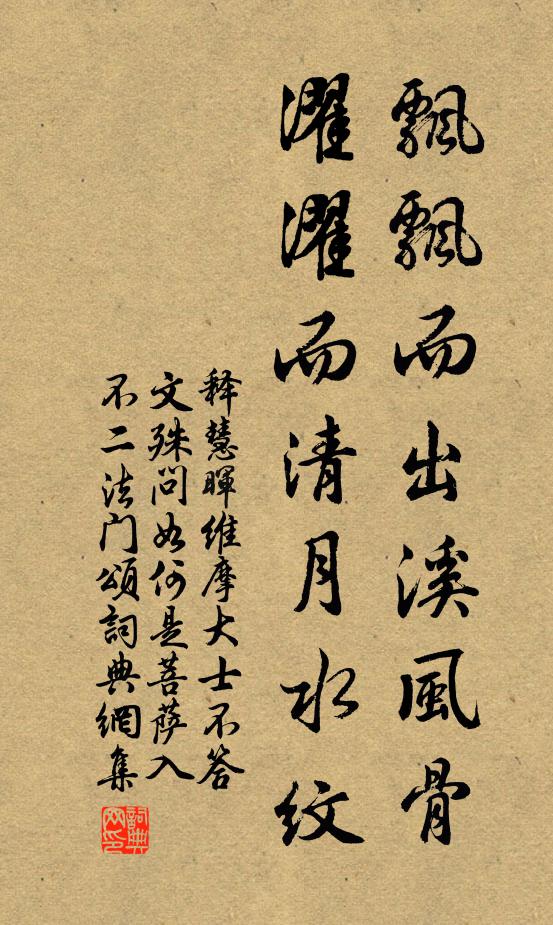 飄飄而出溪風骨
濯濯而清月水紋
释慧暉维摩大士不答
文殊问如何是菩萨入
不二法门頌詞典網集
詞典網印